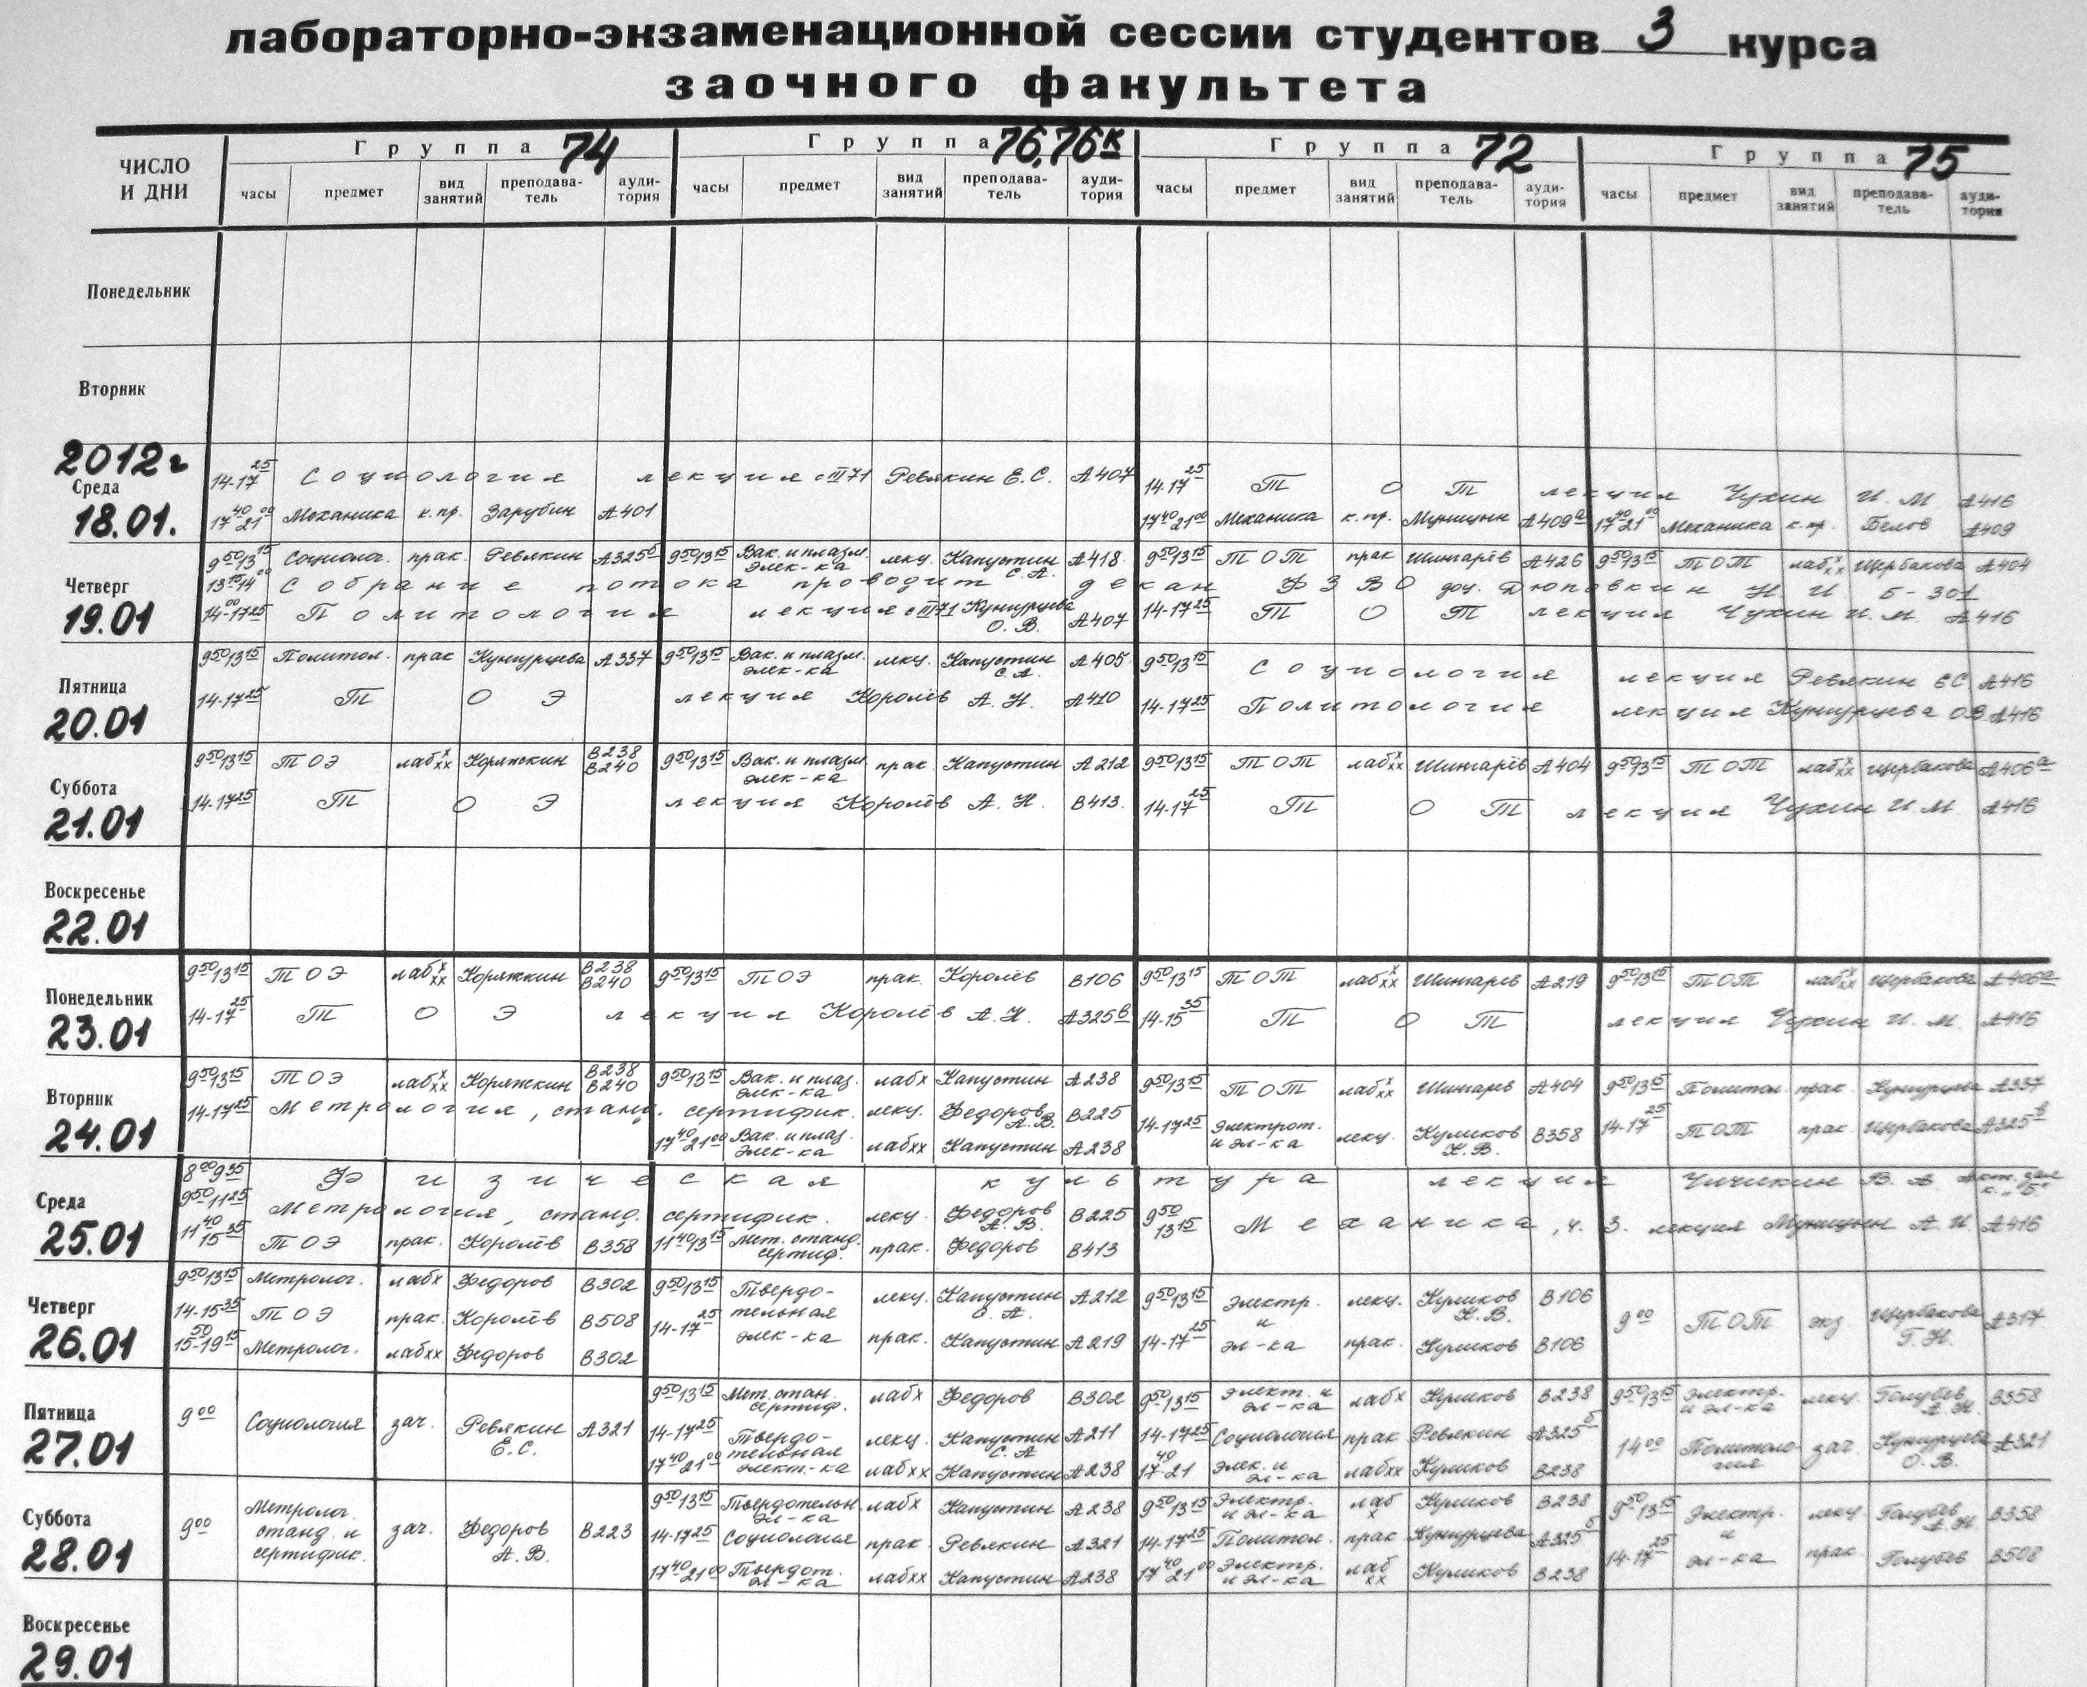 лабораторно-экзаменационной сессии студентов 3 курса
заочного факультета
ЧИСЛО И ДНИ
Группа 74 Группа 76,76к Группа 72 Группа 75
часы предмет вид занятий преподаватель аудитория часы предмет вид занятий преподаватель аудитория часы предмет вид занятий преподаватель аудитория часы предмет вид занятий преподаватель аудитория
Понедельник
Вторник
2012г
Среда
18.01.
14-17 25 Социология лекция с III 71 Ревякин Е.С. А407 14-17 25 ТОТ лекция Чухин И.М А416
17 40 21 00 Механика к.пр. Зарубин А401 17 40 21 00 Механика к.пр. Муницын А409а 17 40 21 00 Механика к.пр. Белов А409
Четверг
19.01
9 50 13 15 Социолог. прак. Ревякин А325б 9 50 13 15 Вак. и плазм. элек-ка лекц. Капустин С.А. А418 9 50 13 15 ТОТ прак Шингарёв А426 9 50 13 15 ТОТ лаб х хх Щербакова А404
13 15 14 00 Собрание потока проводит декан ФЗВО доц. Дюповкин Н.И Б-301
14 00-17 25 Политология лекция с III 71 Кунгурцева О.В. А407 14-17 25 ТОТ лекция Чухин И.М. А416
Пятница
20.01
9 50 13 15 Политол. прак Кунгурцева А337 9 50 13 15 Вак. и плазм. элек-ка лекц. Капустин С.А. А405 9 50 13 15 Социология лекция Ревякин ЕС А416
14-17 25 ТОЭ лекция Королёв А.Н. А410 14-17 25 Политология лекция Кунгурцева ОВ. А416
Суббота
21.01
9 50 13 15 ТОЭ лаб х хх Коряжкин В238 В240 9 50 13 15 Вак. и плазм. элек-ка прак. Капустин А212 9 50 13 15 ТОТ лаб х хх Шингарёв А404 9 50 13 15 ТОТ лаб х хх Щербакова А406а
14-17 25 ТОЭ лекция Королёв А.Н. В413. 14-17 25 ТОТ лекция Чухин И.М. А416
Воскресенье
22.01
Понедельник
23.01
9 50 13 15 ТОЭ лаб х хх Коряжкин В238 В240 9 50 13 15 ТОЭ прак. Королёв В106 9 50 13 15 ТОТ лаб х хх Шингарев А219 9 50 13 15 ТОТ лаб х хх Щербакова А406а
14-17 25 ТОЭ лекция Королёв А.Н. А325в 14-15 35 ТОТ лекция Чухин И.М. А416
Вторник
24.01
9 50 13 15 ТОЭ лаб х хх Коряжкин В238 В240 9 50 13 15 Вак. и плаз. элек-ка лаб х Капустин А238 9 50 13 15 ТОТ лаб х хх Шингарев А404 9 50 13 15 Политол прак. Кунгурцева А337
14-17 25 Метрология, станд. сертифик. лекц. Федоров А.В. В225 14-17 25 Электрот. и эл-ка лекц. Куликов К.В. В358 14-17 25 ТОТ прак. Щербакова А325в
17 40 21 00 Вак. и плаз. элек-ка лаб хх Капустин А238
Среда
25.01
8 00 9 35 Физическая культура лекция Чичикин В.А Акт. зал к. "Б"
9 50-11 25 Метрология, станд. сертифик. лекц. Федоров А.В. В225 9 50 13 15 Механика, ч. 3. лекция Муницын А.И. А416
11 40 15 35 ТОЭ прак. Королёв В358 11 40 13 15 Мет. станд. сертиф. прак. Федоров В413
Четверг
26.01
9 50 13 15 Метролог. лаб х Федоров В302 9 50 13 15 Твердотельная элек-ка лекц. Капустин С.А. А212 9 50 13 15 Электр. и эл-ка лекц. Куликов К.В. В106 9 00 ТОТ экз Щербакова Г.Н. А317
14-15 35 ТОЭ прак. Королёв В508 14-17 25 прак. Капустин А219 14-17 25 прак. Куликов В106
15 50-19 15 Метролог. лаб хх Федоров В302
Пятница
27.01
9 00 Социология зач. Ревякин Е.С. А321 9 50 13 15 Мет. стан. сертиф. лаб х Федоров В302 9 50 13 15 Элект. и эл-ка лаб х Куликов В238 9 50 13 15 Электр. и эл-ка лекц Голубев А.Н. В358
14-17 25 Твердотельная элект.-ка лекц. Капустин С.А А211 14-17 25 Социология прак Ревякин А325б 14 00 Политология зач. Кунгурцева О.В. А321
17 40 21 00 лаб хх Капустин А238 17 40 21 Элек. и эл-ка лаб хх Куликов В238
Суббота
28.01
9 00 Метролог. станд. и сертифик. зач. Федоров А.В. В223 9 50 13 15 Твердотельн. эл-ка лаб х Капустин А238 9 50 13 15 Электр. и эл-ка лаб х Куликов В238 9 50 13 15 Электр. и эл-ка лекц Голубев А.Н. В358
14-17 25 Социология прак. Ревякин А321 14-17 25 Политол. прак Кунгурцева А325б 14-17 25 прак. Голубев В508
17 40 21 00 Твердот. эл-ка лаб хх Капустин А238 17 40 21 00 Электр. и эл-ка лаб хх Куликов В238
Воскресенье
29.01